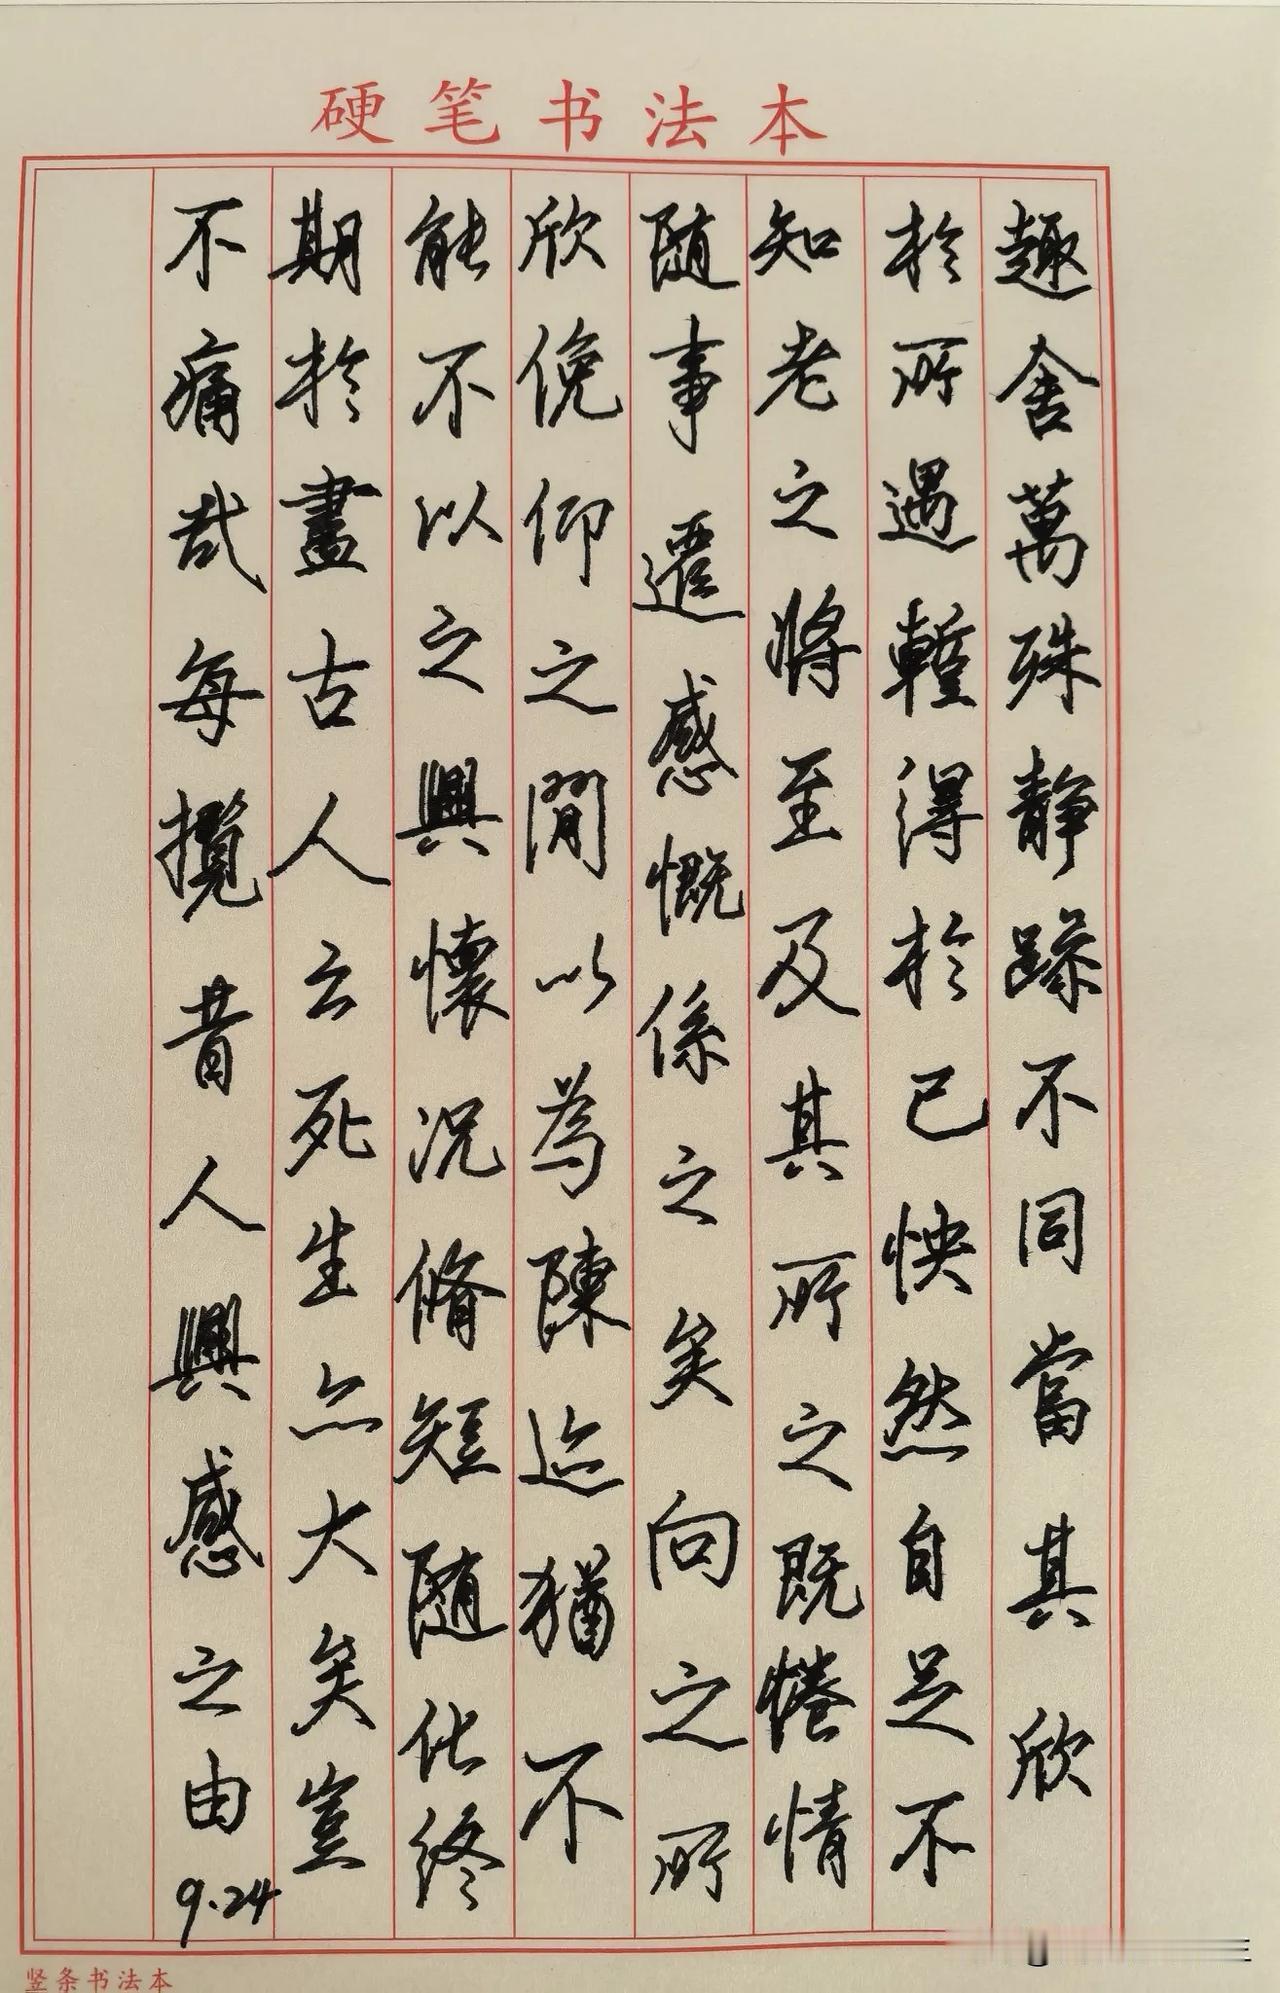 硬笔书法本
趣舍萬殊静躁不同當其欣
於所遇蹔得於己怏然自足不
知老之將至及其所之既惓情
随事遷感慨係之矣向之所
欣俛仰之閒以為陳迹猶不
能不以之興懷況脩短随化終
期於盡古人云死生亦大矣豈
不痛哉每攬昔人興感之由
9.24
竖条书法本